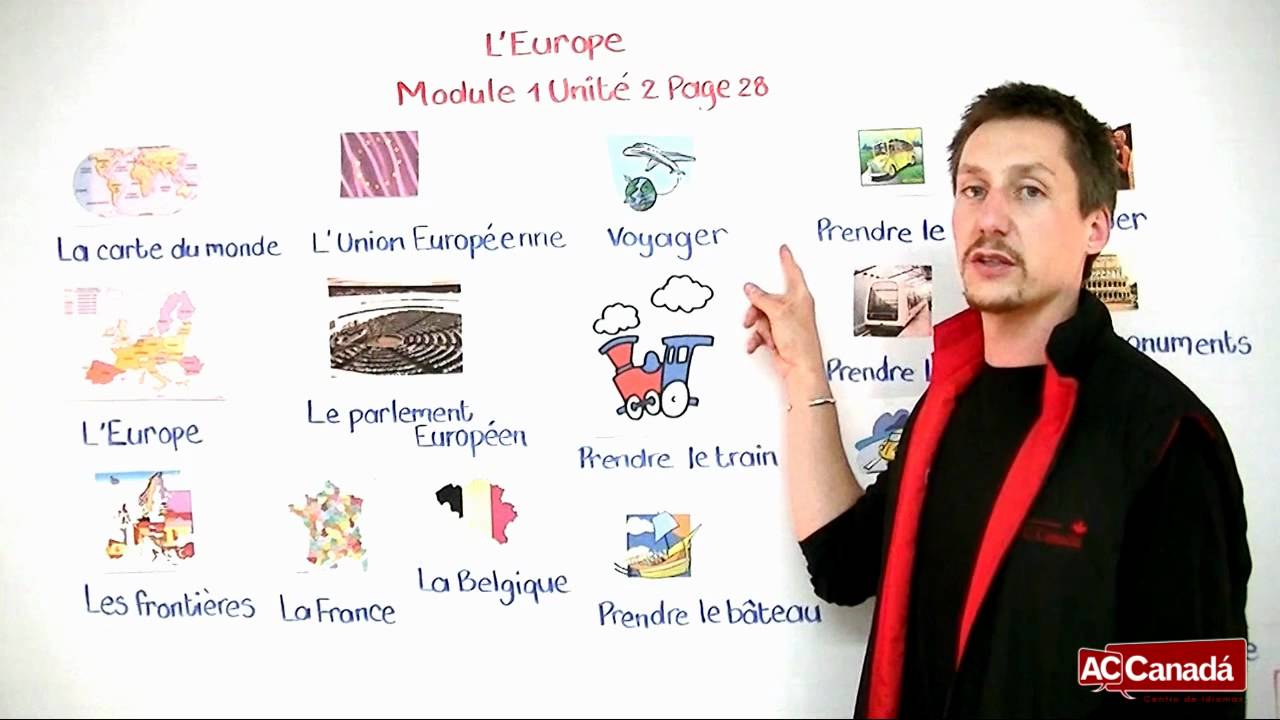 L'Europe
Module 1 Unité 2 Page 28
La carte du monde
L'Union Européenne
Voyager
Prendre le
L'Europe
Le parlement
Européen
Prendre le train
Prendre
onuments
Les frontières
La France
La Belgique
Prendre le bâteau
ACCanadá
Centro de Idiomas